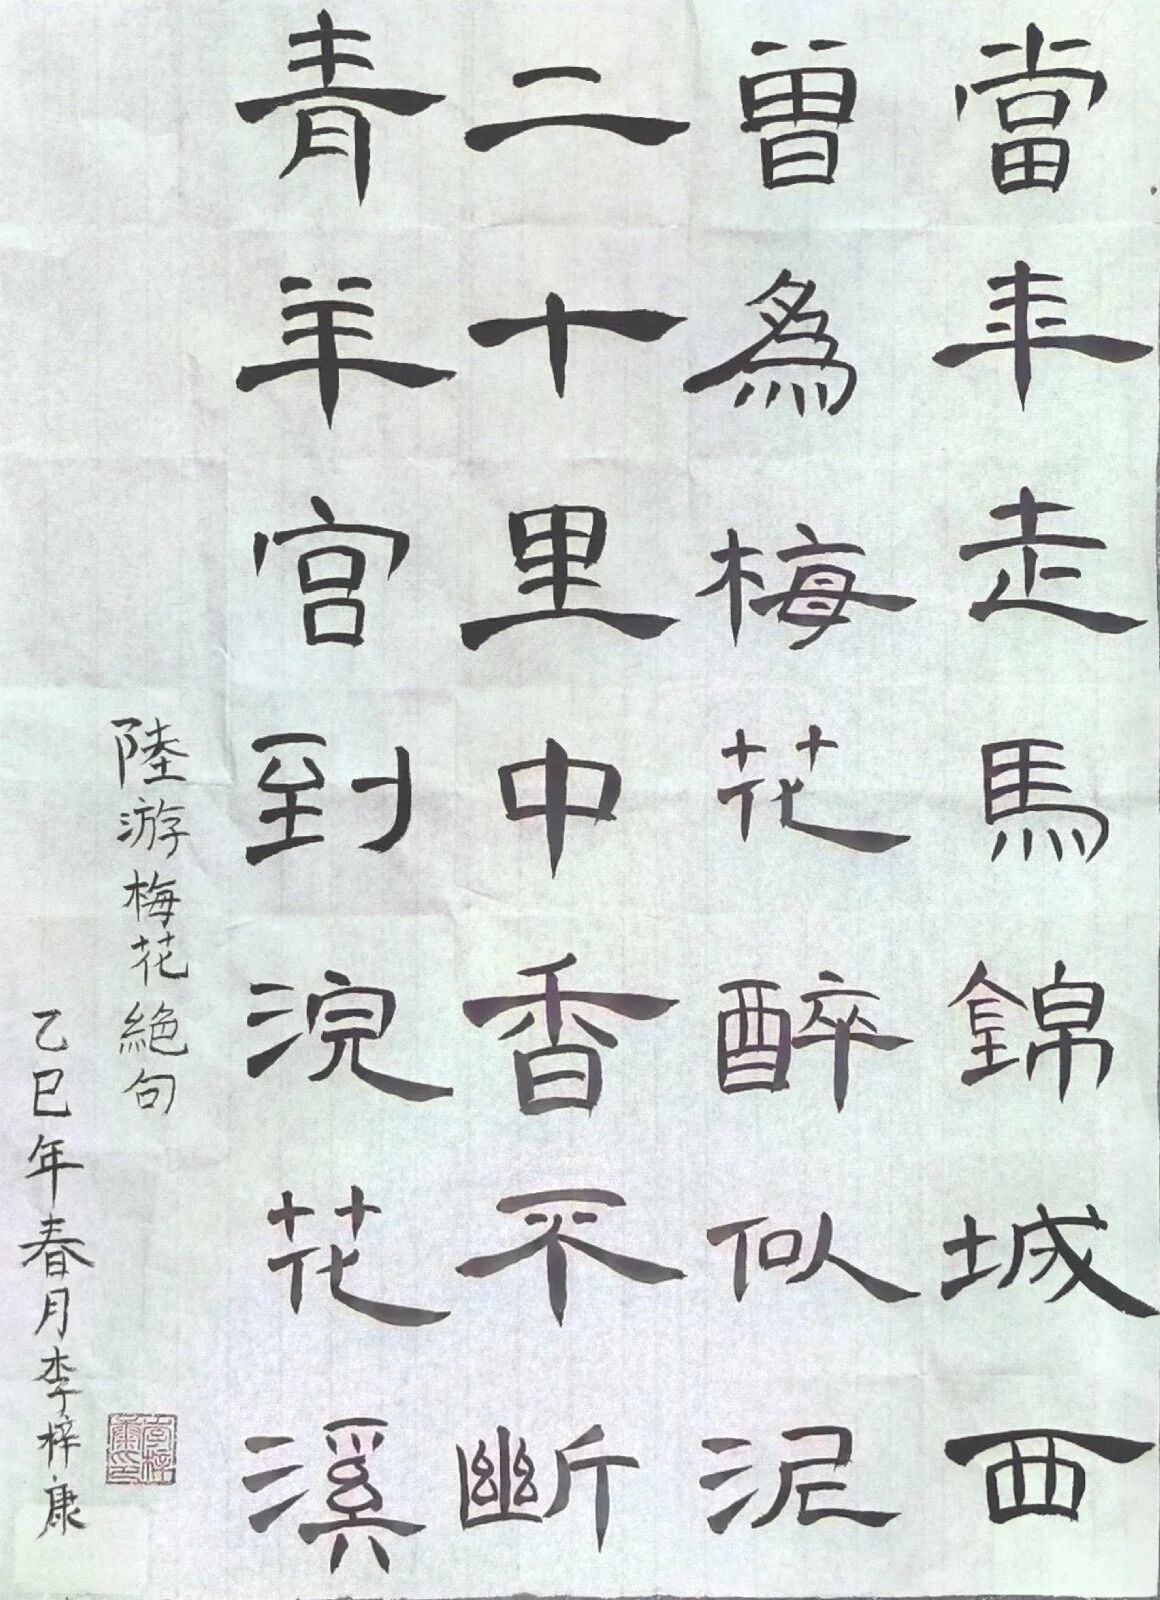 當年走馬錦城西
曽為梅花醉似泥
二十里中香不斷
青羊宮到浣花溪
陸游梅花絕句
乙巳年春月李梓康
李梓康印